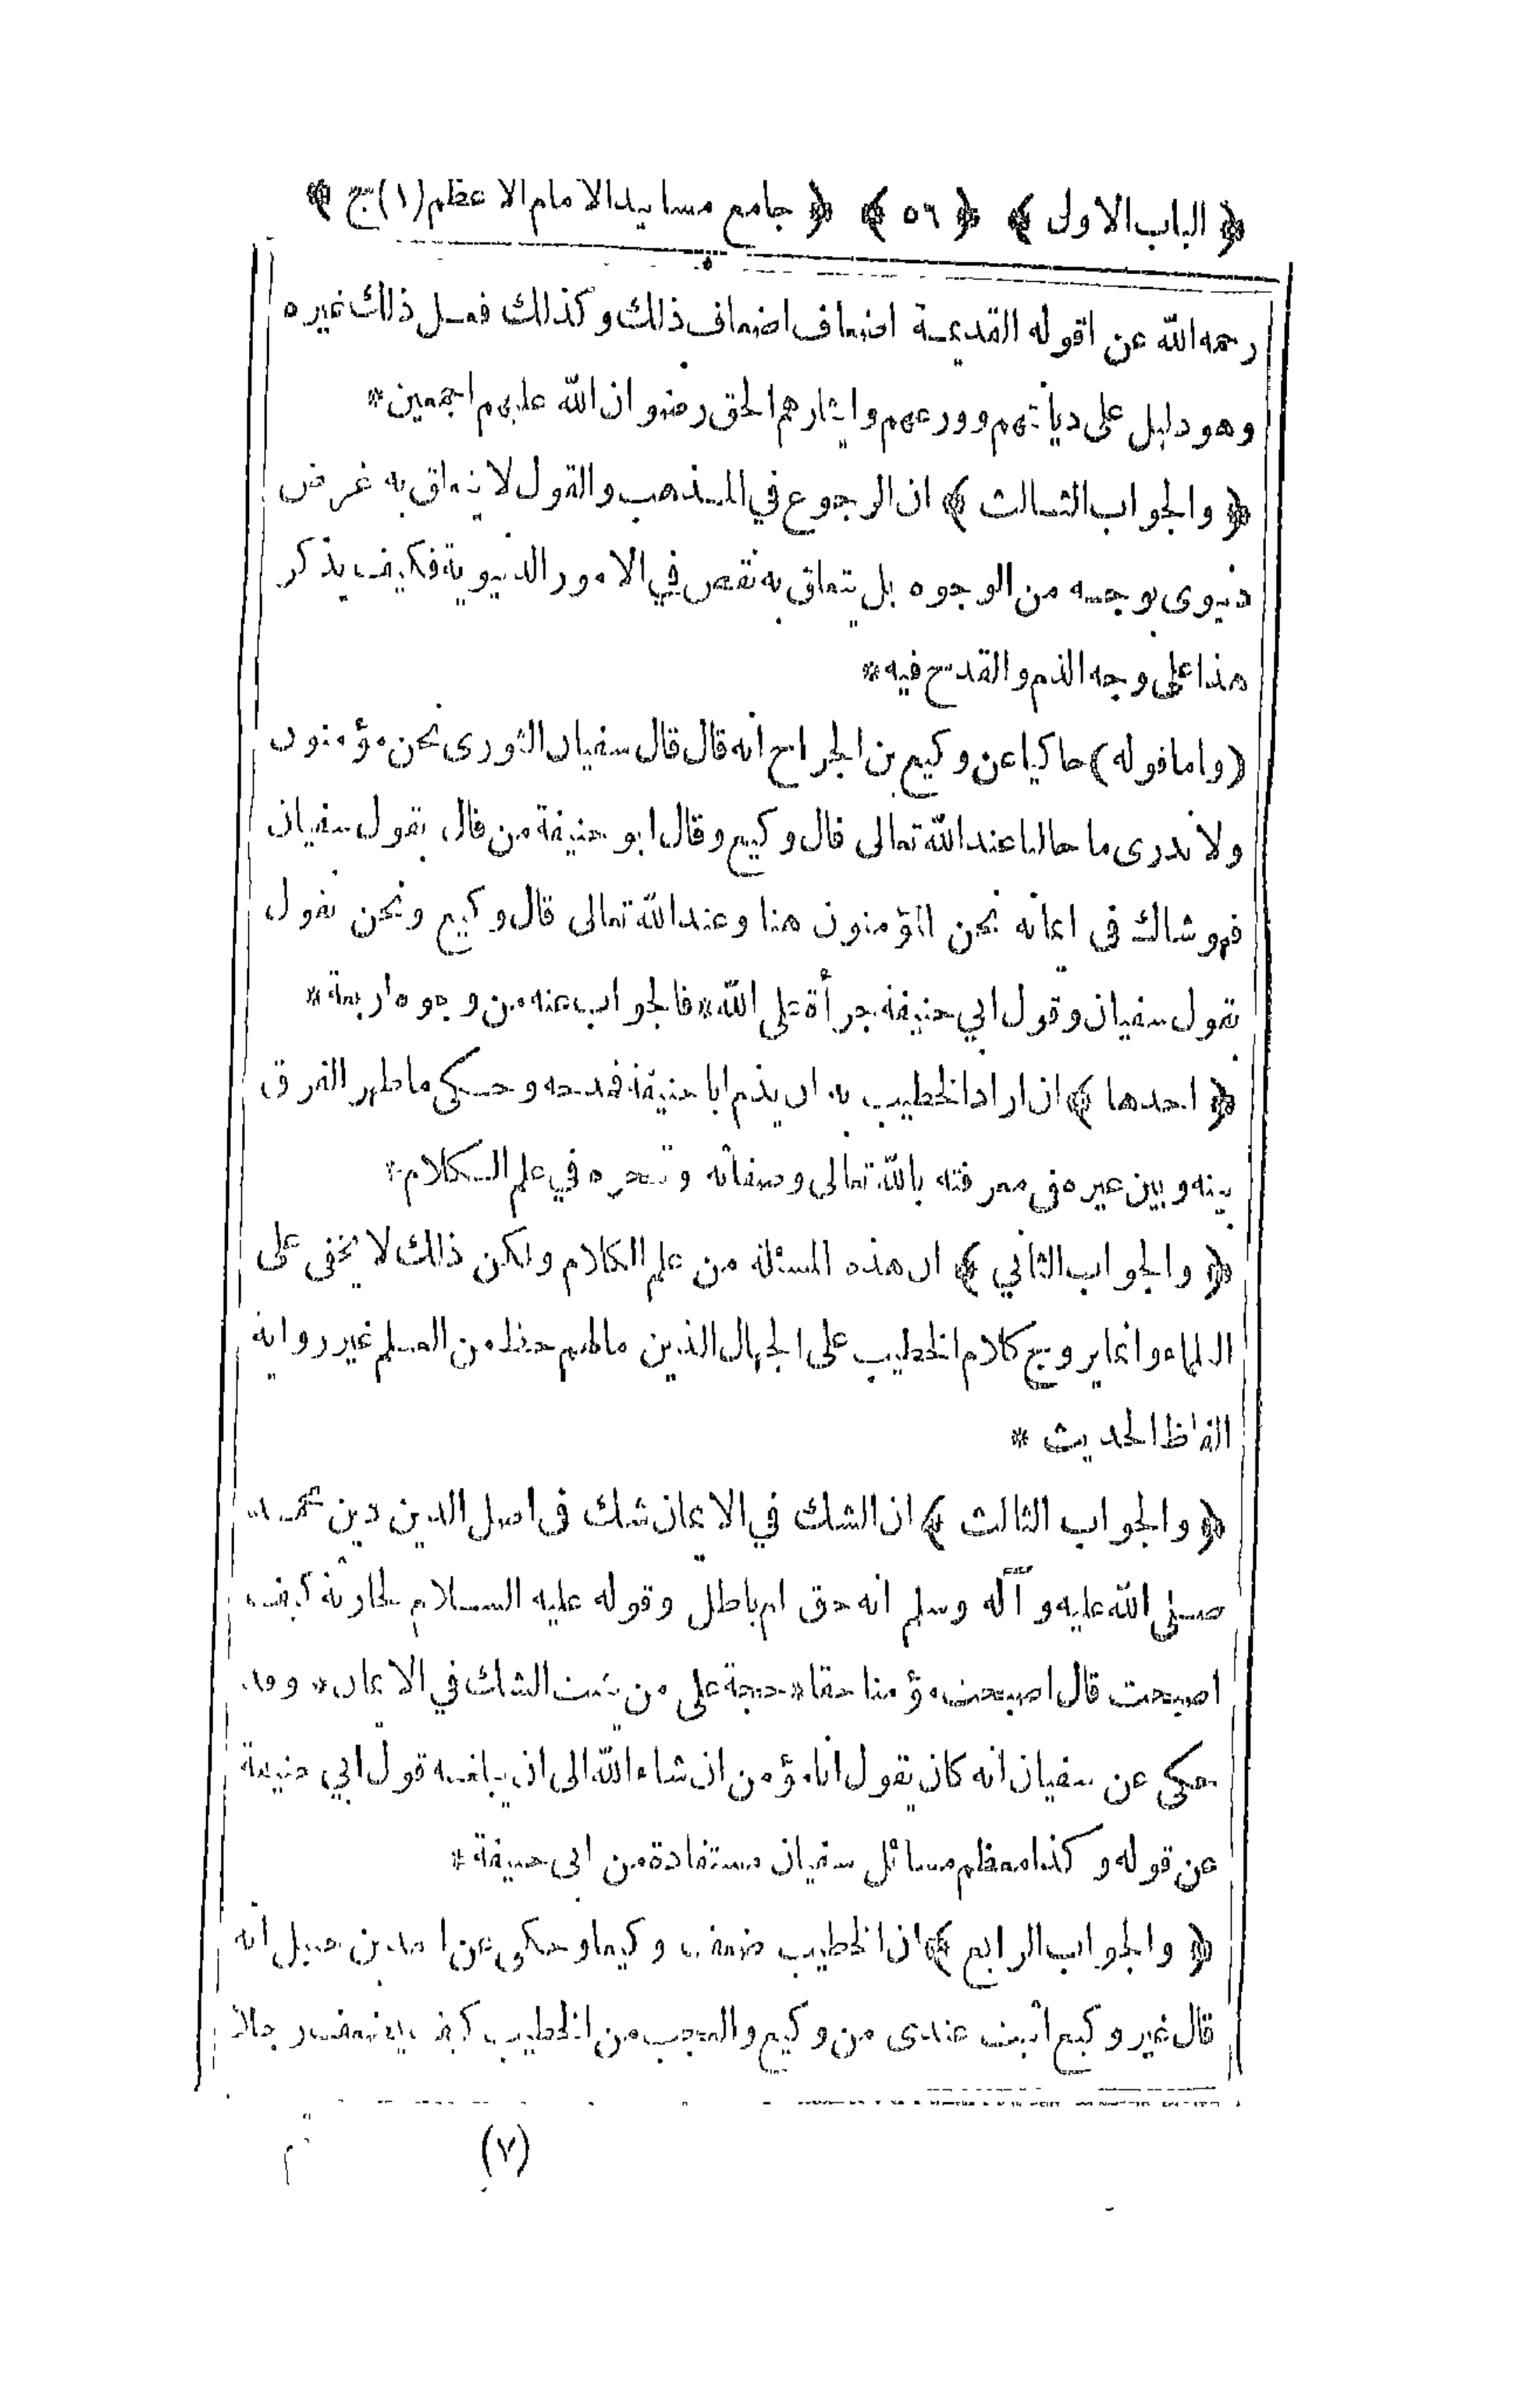 ﴿ الباب الاول ﴾ ﴿ ٥٦ ﴾ ﴿ جامع مسانيد الامام الاعظم (١) ج ﴾
رحمه الله عن اقوله القديمة اضعاف اضعاف ذلك وكذلك فعل ذلك غيره
وهو دليل على ديانتهم وورعهم وايثارهم الحق رضوان الله عليهم اجمعين*
﴿ والجواب الثالث ﴾ ان الرجوع في المذهب والقول لا يتعلق به غرض
دنيوى بوجه من الوجوه بل يتعلق به نقص في الامور الدنيوية فكيف يذكر
هذا على وجه الذم والقدح فيه*
(واما قوله) حاكيا عن وكيع بن الجراح انه قال قال سفيان الثورى نحن مؤمنون
ولا ندرى ما حالنا عند الله تعالى قال وكيع وقال ابو حنيفة من قال بقول سفيان
فهو شاك في ايمانه نحن المؤمنون هنا وعند الله تعالى قال وكيع ونحن نقول
بقول سفيان وقول ابي حنيفة جرأة على الله* فالجواب عنه من وجوه اربعة*
﴿ احدها ﴾ ان اراد الخطيب به ان يذم ابا حنيفة فمدحه وحكى ما ظهر الفرق
بينه وبين غيره في معرفته بالله تعالى وصفاته وتبحره في علم الكلام*
﴿ والجواب الثاني ﴾ ان هذه المسئلة من علم الكلام ولكن ذلك لا يخفى على
العلماء وانما يروج كلام الخطيب على الجهال الذين ما لهم حظ من العلم غير رواية
الفاظ الحديث *
﴿ والجواب الثالث ﴾ ان الشك في الايمان شك في اصل الدين دين محمد
صلى الله عليه وآله وسلم انه حق ام باطل وقوله عليه السلام لحارثة كيف
اصبحت قال اصبحت مؤمنا حقا* حجة على من يثبت الشك في الايمان* وقد
حكى عن سفيان انه كان يقول انا مؤمن ان شاء الله الى ان بلغه قول ابي حنيفة
عن قوله وكذا معظم مسائل سفيان مستفادة من ابي حنيفة*
﴿ والجواب الرابع ﴾ ان الخطيب ضعف وكيعا وحكى عن احمد بن حنبل انه
قال غير وكيع اثبت عندى من وكيع والعجب من الخطيب كيف يضعف رجلا
(٧)